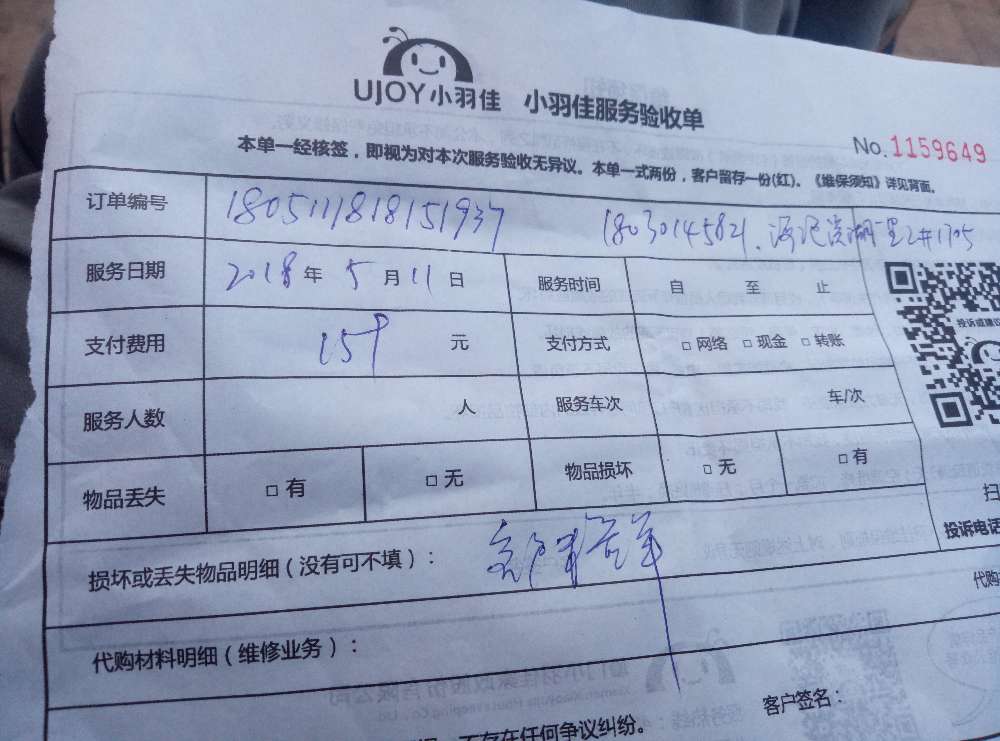 UJOY小羽佳 小羽佳服务验收单
No. 1159649
本单一经核签，即视为对本次服务验收无异议。本单一式两份，客户留存一份(红)。《维保须知》详见背面。
订单编号 1805111818151937 18030145821
服务日期 2018年5月11日 服务时间 自 至 止
支付费用 159 元 支付方式 □网络 □现金 □转账
投诉或建议
服务人数 人 服务车次 车/次
物品丢失 □有 □无 物品损坏 □无 □有
扫
投诉电话
损坏或丢失物品明细（没有可不填）：
代购
代购材料明细（维修业务）：
客户签名：
不存在任何争议纠纷。